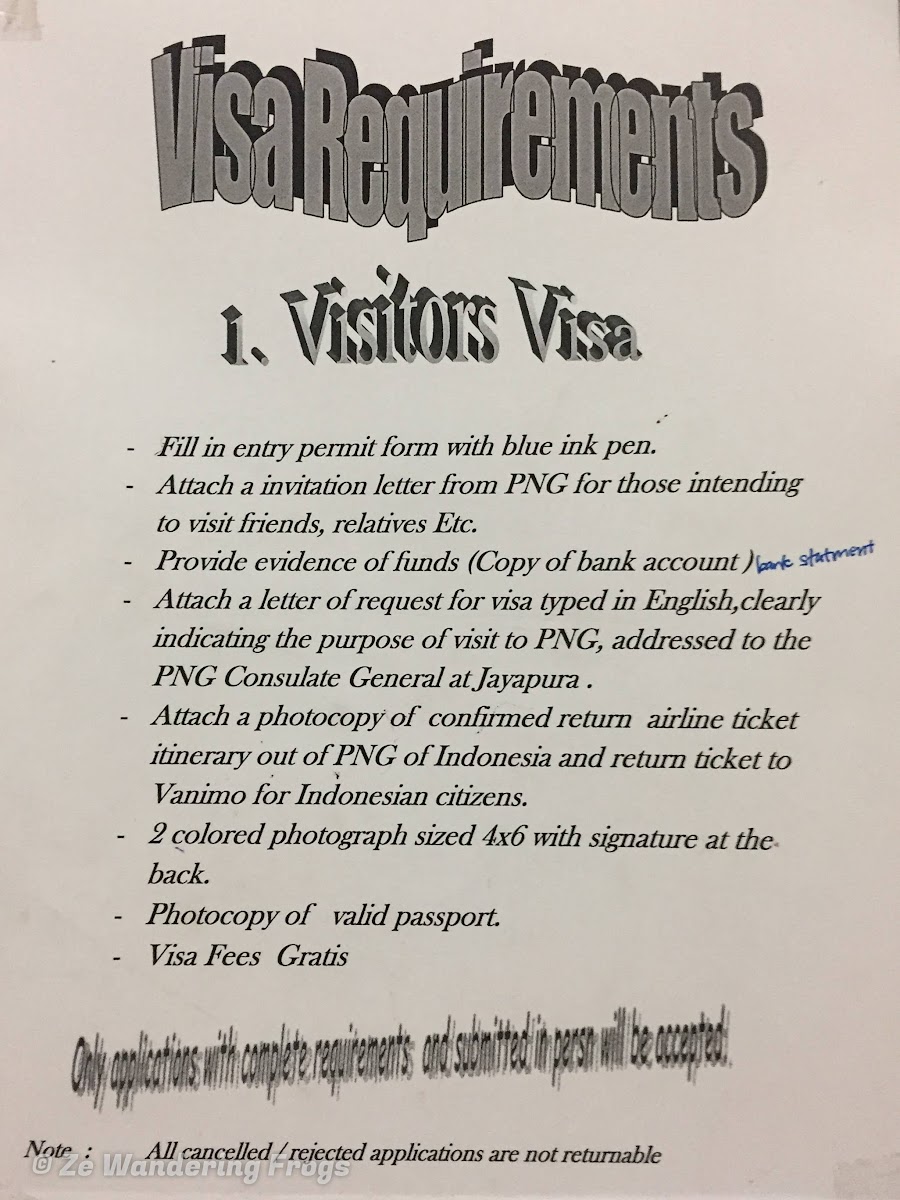 Visa Requirements
1. Visitors Visa
- Fill in entry permit form with blue ink pen.
- Attach a invitation letter from PNG for those intending
to visit friends, relatives Etc.
- Provide evidence of funds (Copy of bank account ) bank statment
- Attach a letter of request for visa typed in English,clearly
indicating the purpose of visit to PNG, addressed to the
PNG Consulate General at Jayapura .
- Attach a photocopy of confirmed return airline ticket
itinerary out of PNG of Indonesia and return ticket to
Vanimo for Indonesian citizens.
- 2 colored photograph sized 4x6 with signature at the
back.
- Photocopy of valid passport.
- Visa Fees Gratis
Only applications with complete requirements and submitted in persn will be accepted.
Note : All cancelled / rejected applications are not returnable
© Ze Wandering Frogs